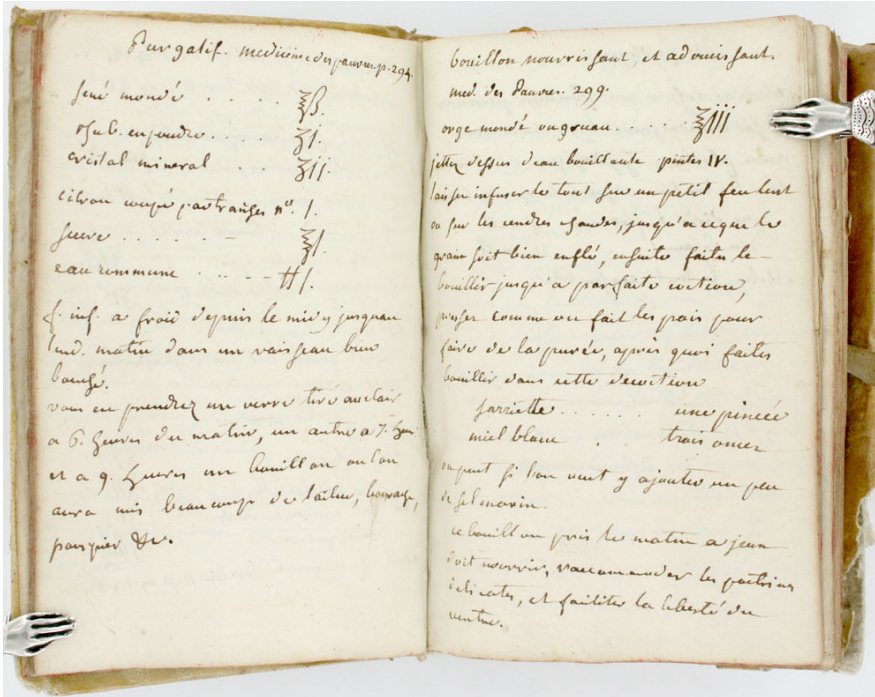 Purgatif. medecine des pauvres. p. 294.
sené mondé . . . . ℥ß.
rhub. en poudre . . . . ʒi.
cristal mineral . ʒii.
citron coupé par tranches n°. 1.
sucre . . . . . ℥i.
eau commune . . . . ℔ I.
f. inf. a froid depuis le midy jusquau
lend. matin dans un vaisseau bien
bouché.
vous en prendrez un verre tiré au clair
a 6. heures du matin, un autre a 7. heur
et a 9. heures un bouillon ou lon
aura mis beaucoup de laitue, bourache,
pourpier &c.
bouillon nourrissant et adoucissant.
med. des Pauvres. 299.
orge mondé ou gruau . . . . ℥iii
jettez dessus deau bouillante pintes IV.
laisser infuser le tout sur un petit feu lent
ou sur les cendres chaudes, jusqu'a ceque le
grain soit bien enflé, ensuite faites le
bouillir jusqu'a parfaite coction,
passer comme on fait les pois pour
faire de la purée, après quoi faites
bouillir dans cette decoction
sarriette . . . . . . une pincée
miel blanc . . trois onces
on peut si lon veut y ajouter un peu
de sel marin.
ce bouillon pris le matin a jeun
doit nourrir, raccommoder les poitrines
delicates, et faciliter la liberté du
ventre.